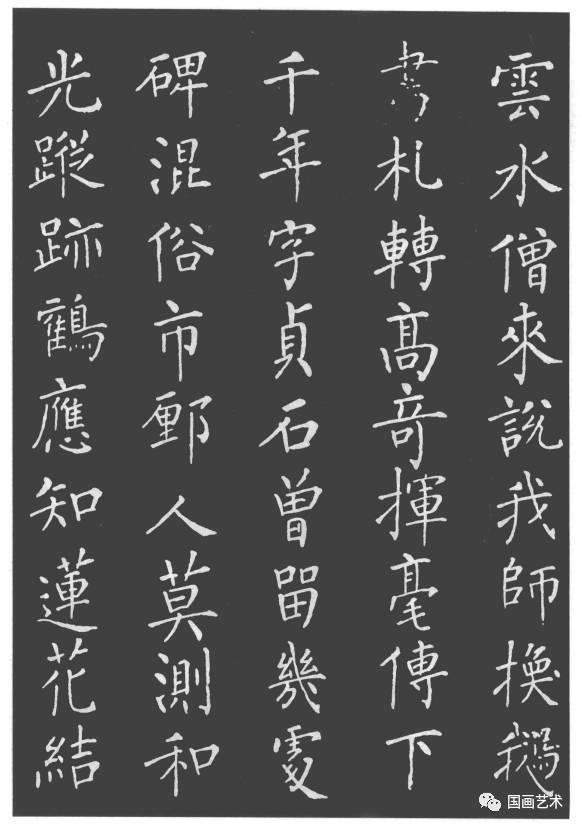 雲水僧來說我師換鵝
書札轉髙奇揮毫傳下
千年字貞石曾留幾處
碑混俗市鄽人莫測和
光蹤跡鶴應知蓮花結
国画艺术